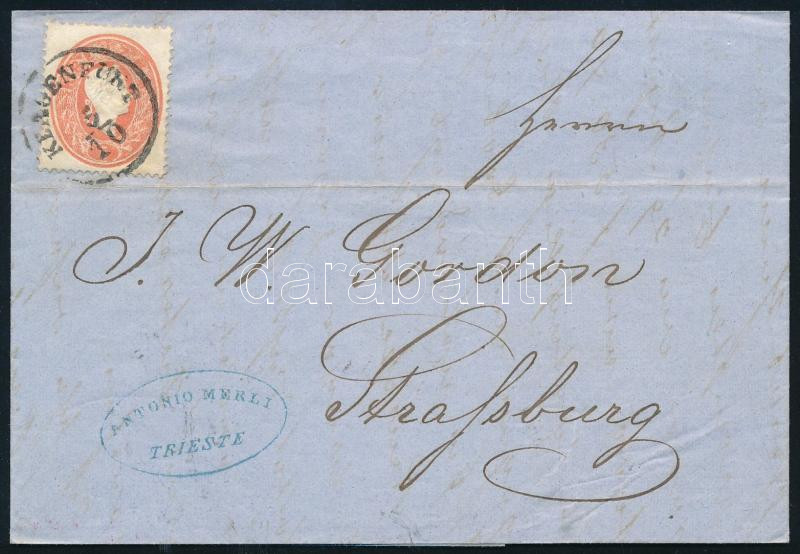 KLAGENFURT
9/10
Herrn
J. W. Gordon
darabanth
Straſsburg
ANTONIO MERLI
TRIESTE